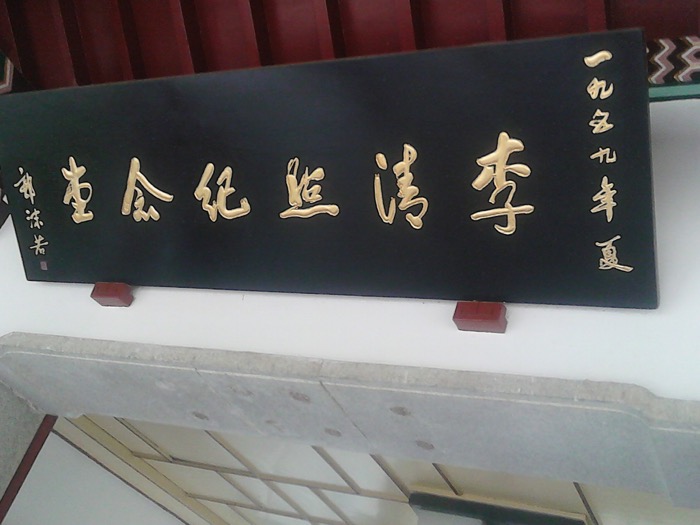 一九五九年夏
李清照纪念堂
郭沫若